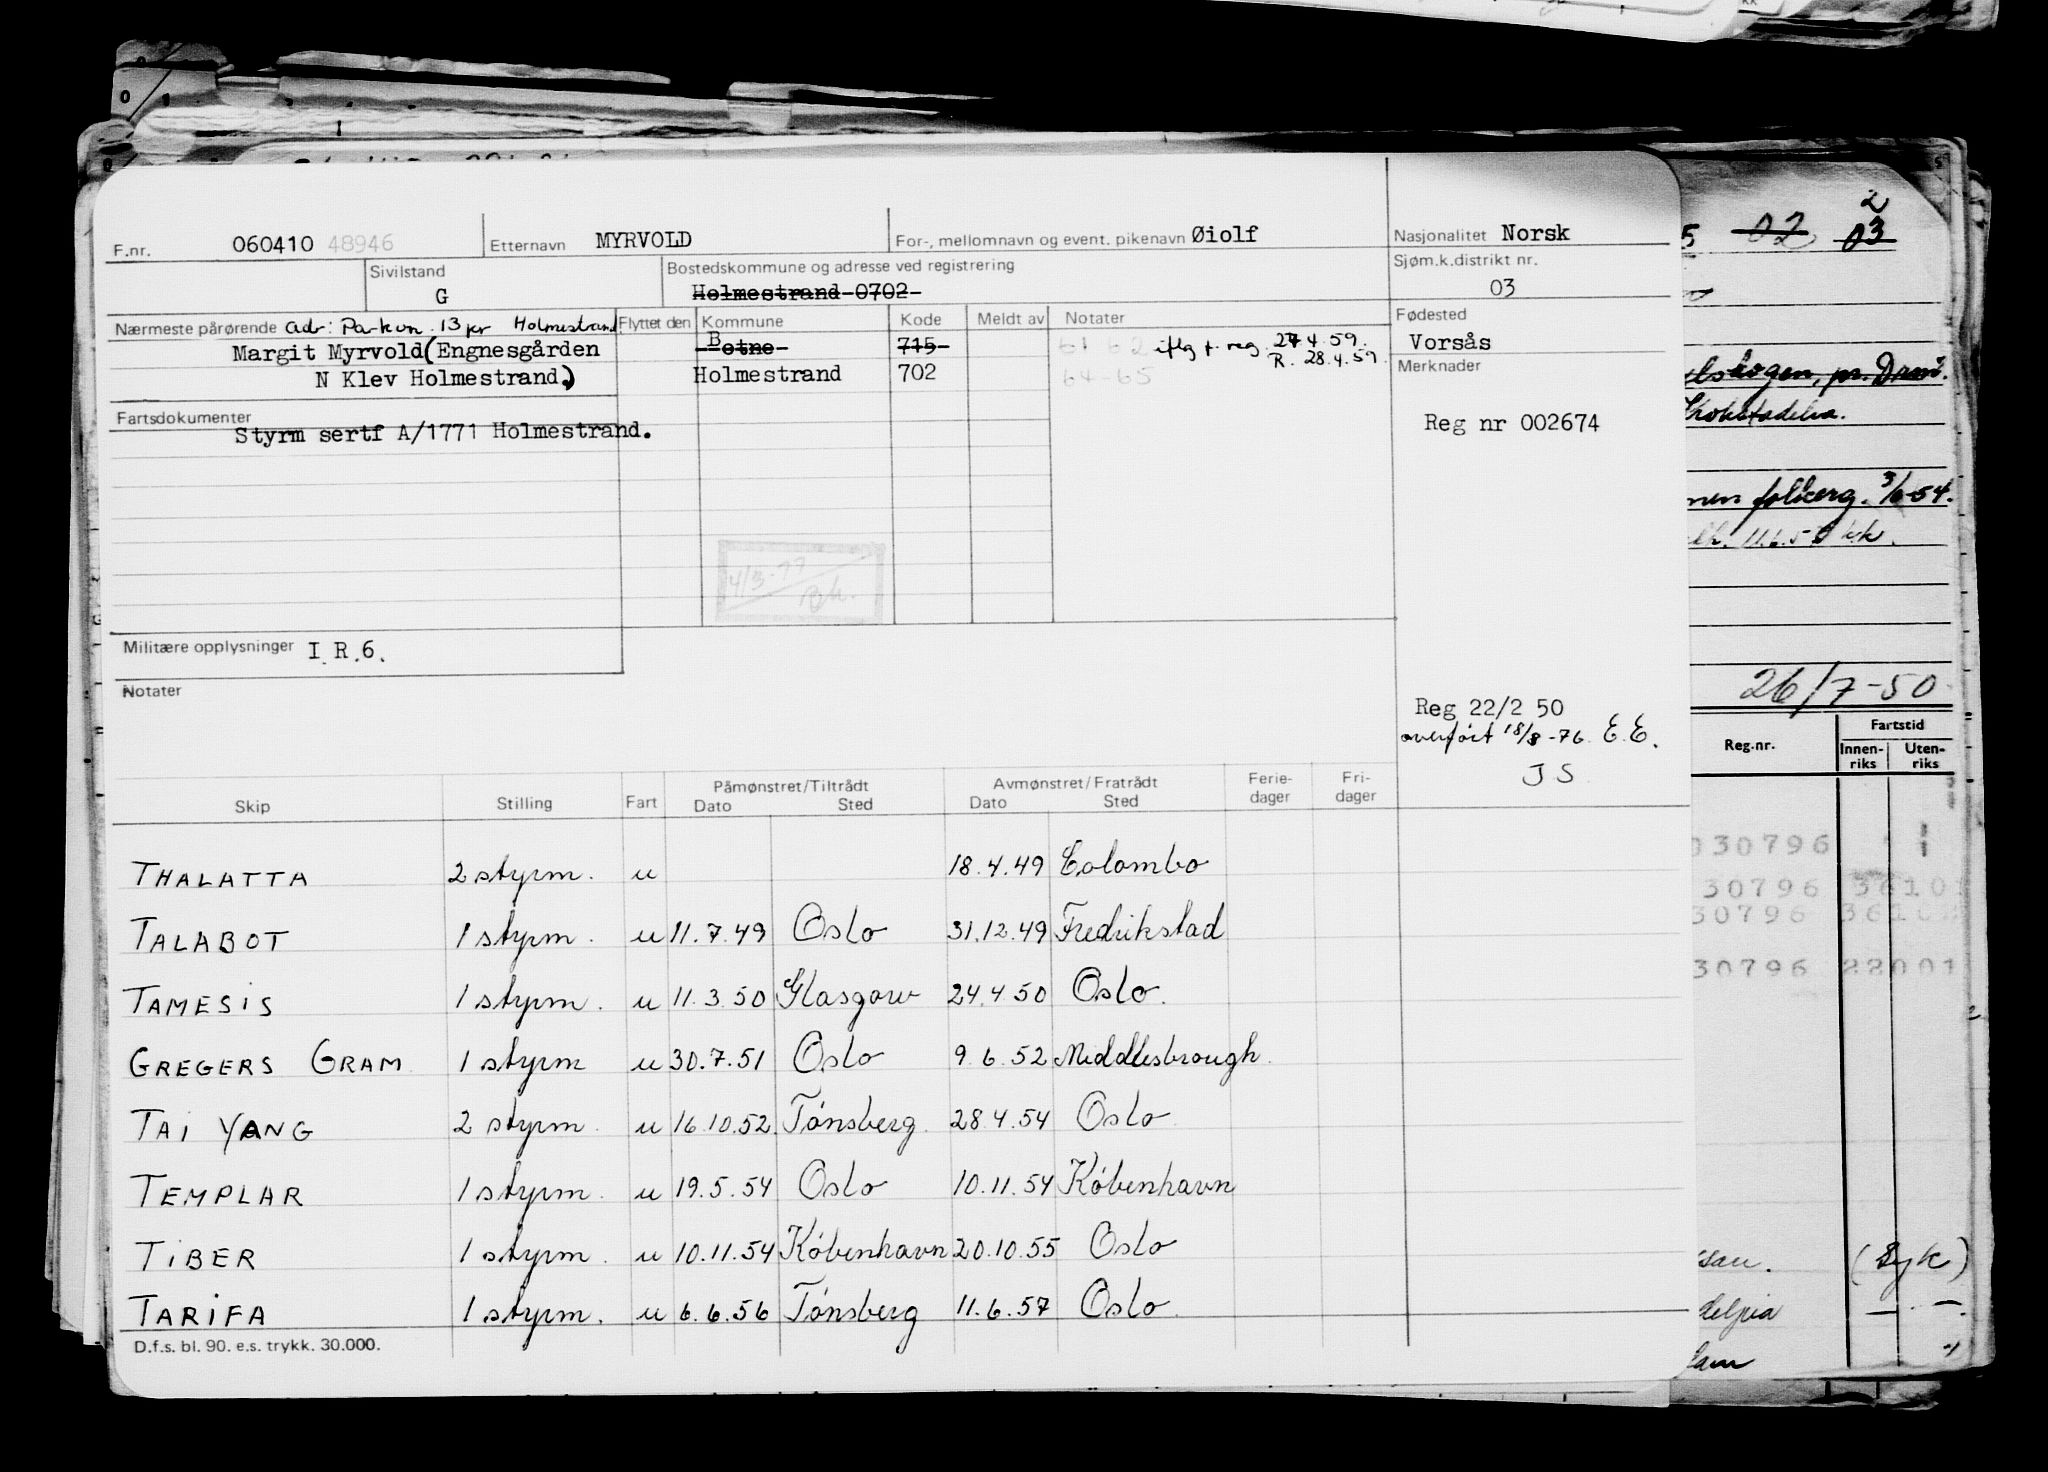 F.nr. 060410 48946 Etternavn MYRVOLD For-, mellomnavn og event. pikenavn Øiolf Nasjonalitet Norsk
Sivilstand G Bostedskommune og adresse ved registrering Holmestrand 0702 Sjøm.k.distrikt nr. 03
Nærmeste pårørende adr: Parkvn. 13 Holmestrand Flyttet den Kommune Kode Meldt av Notater Fødested
Margit Myrvold (Engnesgården Botne 715 61 62 iflg f. reg. 27.4.59. Vorsås
R. 28.4.59.
N Klev Holmestrand.) Holmestrand 702 64-65 Merknader
Fartsdokumenter Reg nr 002674
Styrm sertf A/1771 Holmestrand.
4/3-77
Militære opplysninger I.R.6.
Notater
Reg 22/2 50
overført 18/8-76. E.E.
J S
Skip Stilling Fart Påmønstret/Tiltrådt Dato Sted Avmønstret/Fratrådt Dato Sted Ferie-dager Fri-dager
THALATTA 2 styrm. u 18.4.49 Colombo
TALABOT 1 styrm. u 11.7.49 Oslo 31.12.49 Fredrikstad
TAMESIS 1 styrm. u 11.3.50 Glasgow 24.4.50 Oslo.
GREGERS GRAM 1 styrm u 30.7.51 Oslo 9.6.52 Middlesbrough.
TAI YANG 2 styrm. u 16.10.52. Tónsberg. 28.4.54 Oslo
TEMPLAR 1 styrm. u 19.5.54 Oslo 10.11.54 Kóbenhavn
TIBER 1 styrm. u 10.11.54 Kóbenhavn 20.10.55 Oslo
TARIFA 1 styrm. u 6.6.56 Tónsberg 11.6.57 Oslo.
D.f.s. bl. 90. e.s. trykk. 30.000.
5 02 03
2
26/7-50
Reg.nr. Fartstid
Innen-riks Uten-riks
030796
30796
30796
30796 22001
(Syk)